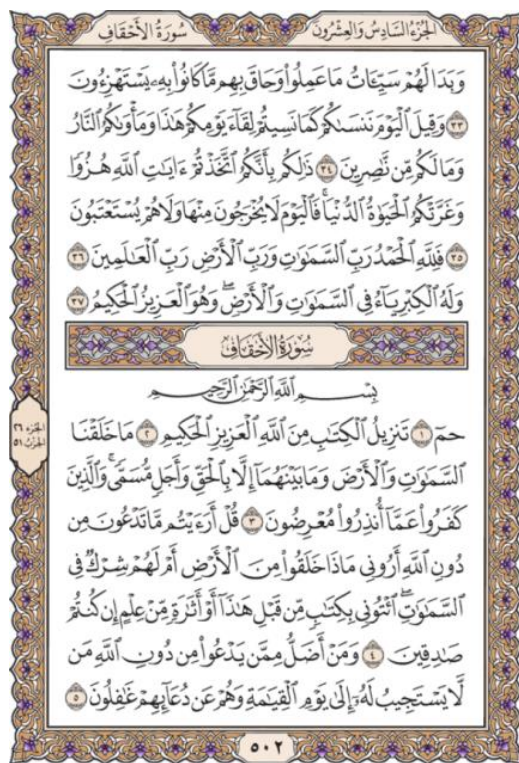 الجزء السادس والعشرون
سورة الأحقاف
وَبَدَا لَهُمْ سَيِّـَٔاتُ مَا عَمِلُوا۟ وَحَاقَ بِهِم مَّا كَانُوا۟ بِهِۦ يَسْتَهْزِءُونَ
٣٣ وَقِيلَ ٱلْيَوْمَ نَنسَىٰكُمْ كَمَا نَسِيتُمْ لِقَآءَ يَوْمِكُمْ هَٰذَا وَمَأْوَىٰكُمُ ٱلنَّارُ
وَمَا لَكُم مِّن نَّٰصِرِينَ ٣٤ ذَٰلِكُم بِأَنَّكُمُ ٱتَّخَذْتُمْ ءَايَٰتِ ٱللَّهِ هُزُوًا
وَغَرَّتْكُمُ ٱلْحَيَوٰةُ ٱلدُّنْيَا ۚ فَٱلْيَوْمَ لَا يُخْرَجُونَ مِنْهَا وَلَا هُمْ يُسْتَعْتَبُونَ
٣٥ فَلِلَّهِ ٱلْحَمْدُ رَبِّ ٱلسَّمَٰوَٰتِ وَرَبِّ ٱلْأَرْضِ رَبِّ ٱلْعَٰلَمِينَ ٣٦
وَلَهُ ٱلْكِبْرِيَآءُ فِى ٱلسَّمَٰوَٰتِ وَٱلْأَرْضِ ۖ وَهُوَ ٱلْعَزِيزُ ٱلْحَكِيمُ ٣٧
سورة الأحقاف
بِسْمِ ٱللَّهِ ٱلرَّحْمَٰنِ ٱلرَّحِيمِ
حمٓ ١ تَنزِيلُ ٱلْكِتَٰبِ مِنَ ٱللَّهِ ٱلْعَزِيزِ ٱلْحَكِيمِ ٢ مَا خَلَقْنَا
ٱلسَّمَٰوَٰتِ وَٱلْأَرْضَ وَمَا بَيْنَهُمَآ إِلَّا بِٱلْحَقِّ وَأَجَلٍ مُّسَمًّى ۚ وَٱلَّذِينَ
كَفَرُوا۟ عَمَّآ أُنذِرُوا۟ مُعْرِضُونَ ٣ قُلْ أَرَءَيْتُم مَّا تَدْعُونَ مِن
دُونِ ٱللَّهِ أَرُونِى مَاذَا خَلَقُوا۟ مِنَ ٱلْأَرْضِ أَمْ لَهُمْ شِرْكٌ فِى
ٱلسَّمَٰوَٰتِ ۖ ٱئْتُونِى بِكِتَٰبٍ مِّن قَبْلِ هَٰذَآ أَوْ أَثَٰرَةٍ مِّنْ عِلْمٍ إِن كُنتُمْ
صَٰدِقِينَ ٤ وَمَنْ أَضَلُّ مِمَّن يَدْعُوا۟ مِن دُونِ ٱللَّهِ مَن
لَّا يَسْتَجِيبُ لَهُۥٓ إِلَىٰ يَوْمِ ٱلْقِيَٰمَةِ وَهُمْ عَن دُعَآئِهِمْ غَٰفِلُونَ ٥
الجزء ٢٦
الحزب ٥١
٥٠٢